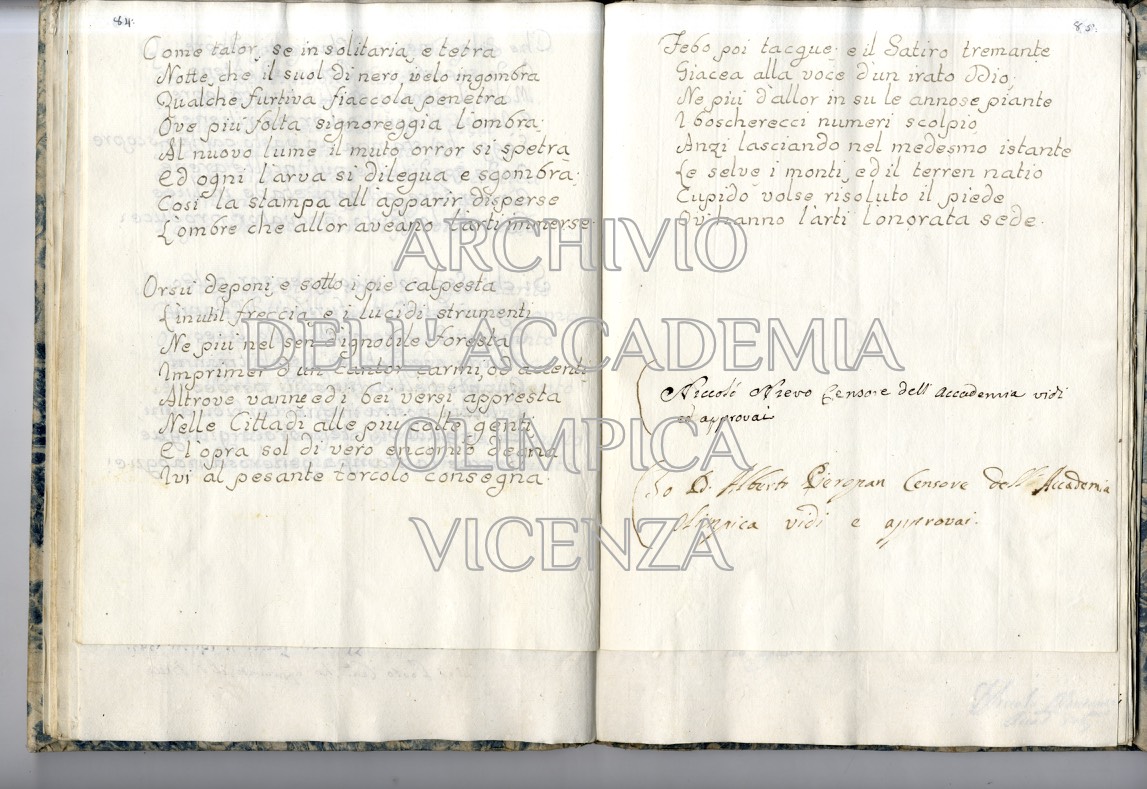 84.
Come talor, se in solitaria, e tetra
Notte, che il suol di nero velo ingombra
Qualche furtiva fiaccola penetra
Ove piu folta signoreggia l'ombra;
Al nuovo lume il muto orror si spetra
Ed ogni larva si dilegua e sgombra;
Così la stampa all apparir disperse
L'ombre che allor aveano l'arti immerse.
Orsù deponi, e sotto i pie calpesta
L'inutil freccia, e i lucidi strumenti
Ne piu nel sen d'ignobile foresta
Imprimer d'un Cantor carmi, od accenti
Altrove vanne ed i bei versi appresta
Nelle Cittadi alle piu colte genti
E l'opra sol di vero encomio degna
Ivi al pesante torcolo consegna.
85.
Febo poi tacque, e il Satiro tremante
Giacea alla voce d'un irato Dio;
Ne piu d'allor in su le annose piante
I boscherecci numeri scolpio,
Anzi lasciando nel medesmo istante
Le selve i monti, ed il terren natio
Cupido volse risoluto il piede
Ovi hanno l'arti l'onorata sede.
Niccolò Nievo Censore dell' Accademia vidi
ed approvai
Io D. Alberto Censore dell' Accademia
Olimpica vidi e approvai.
ARCHIVIO
DELL'ACCADEMIA
OLIMPICA
VICENZA